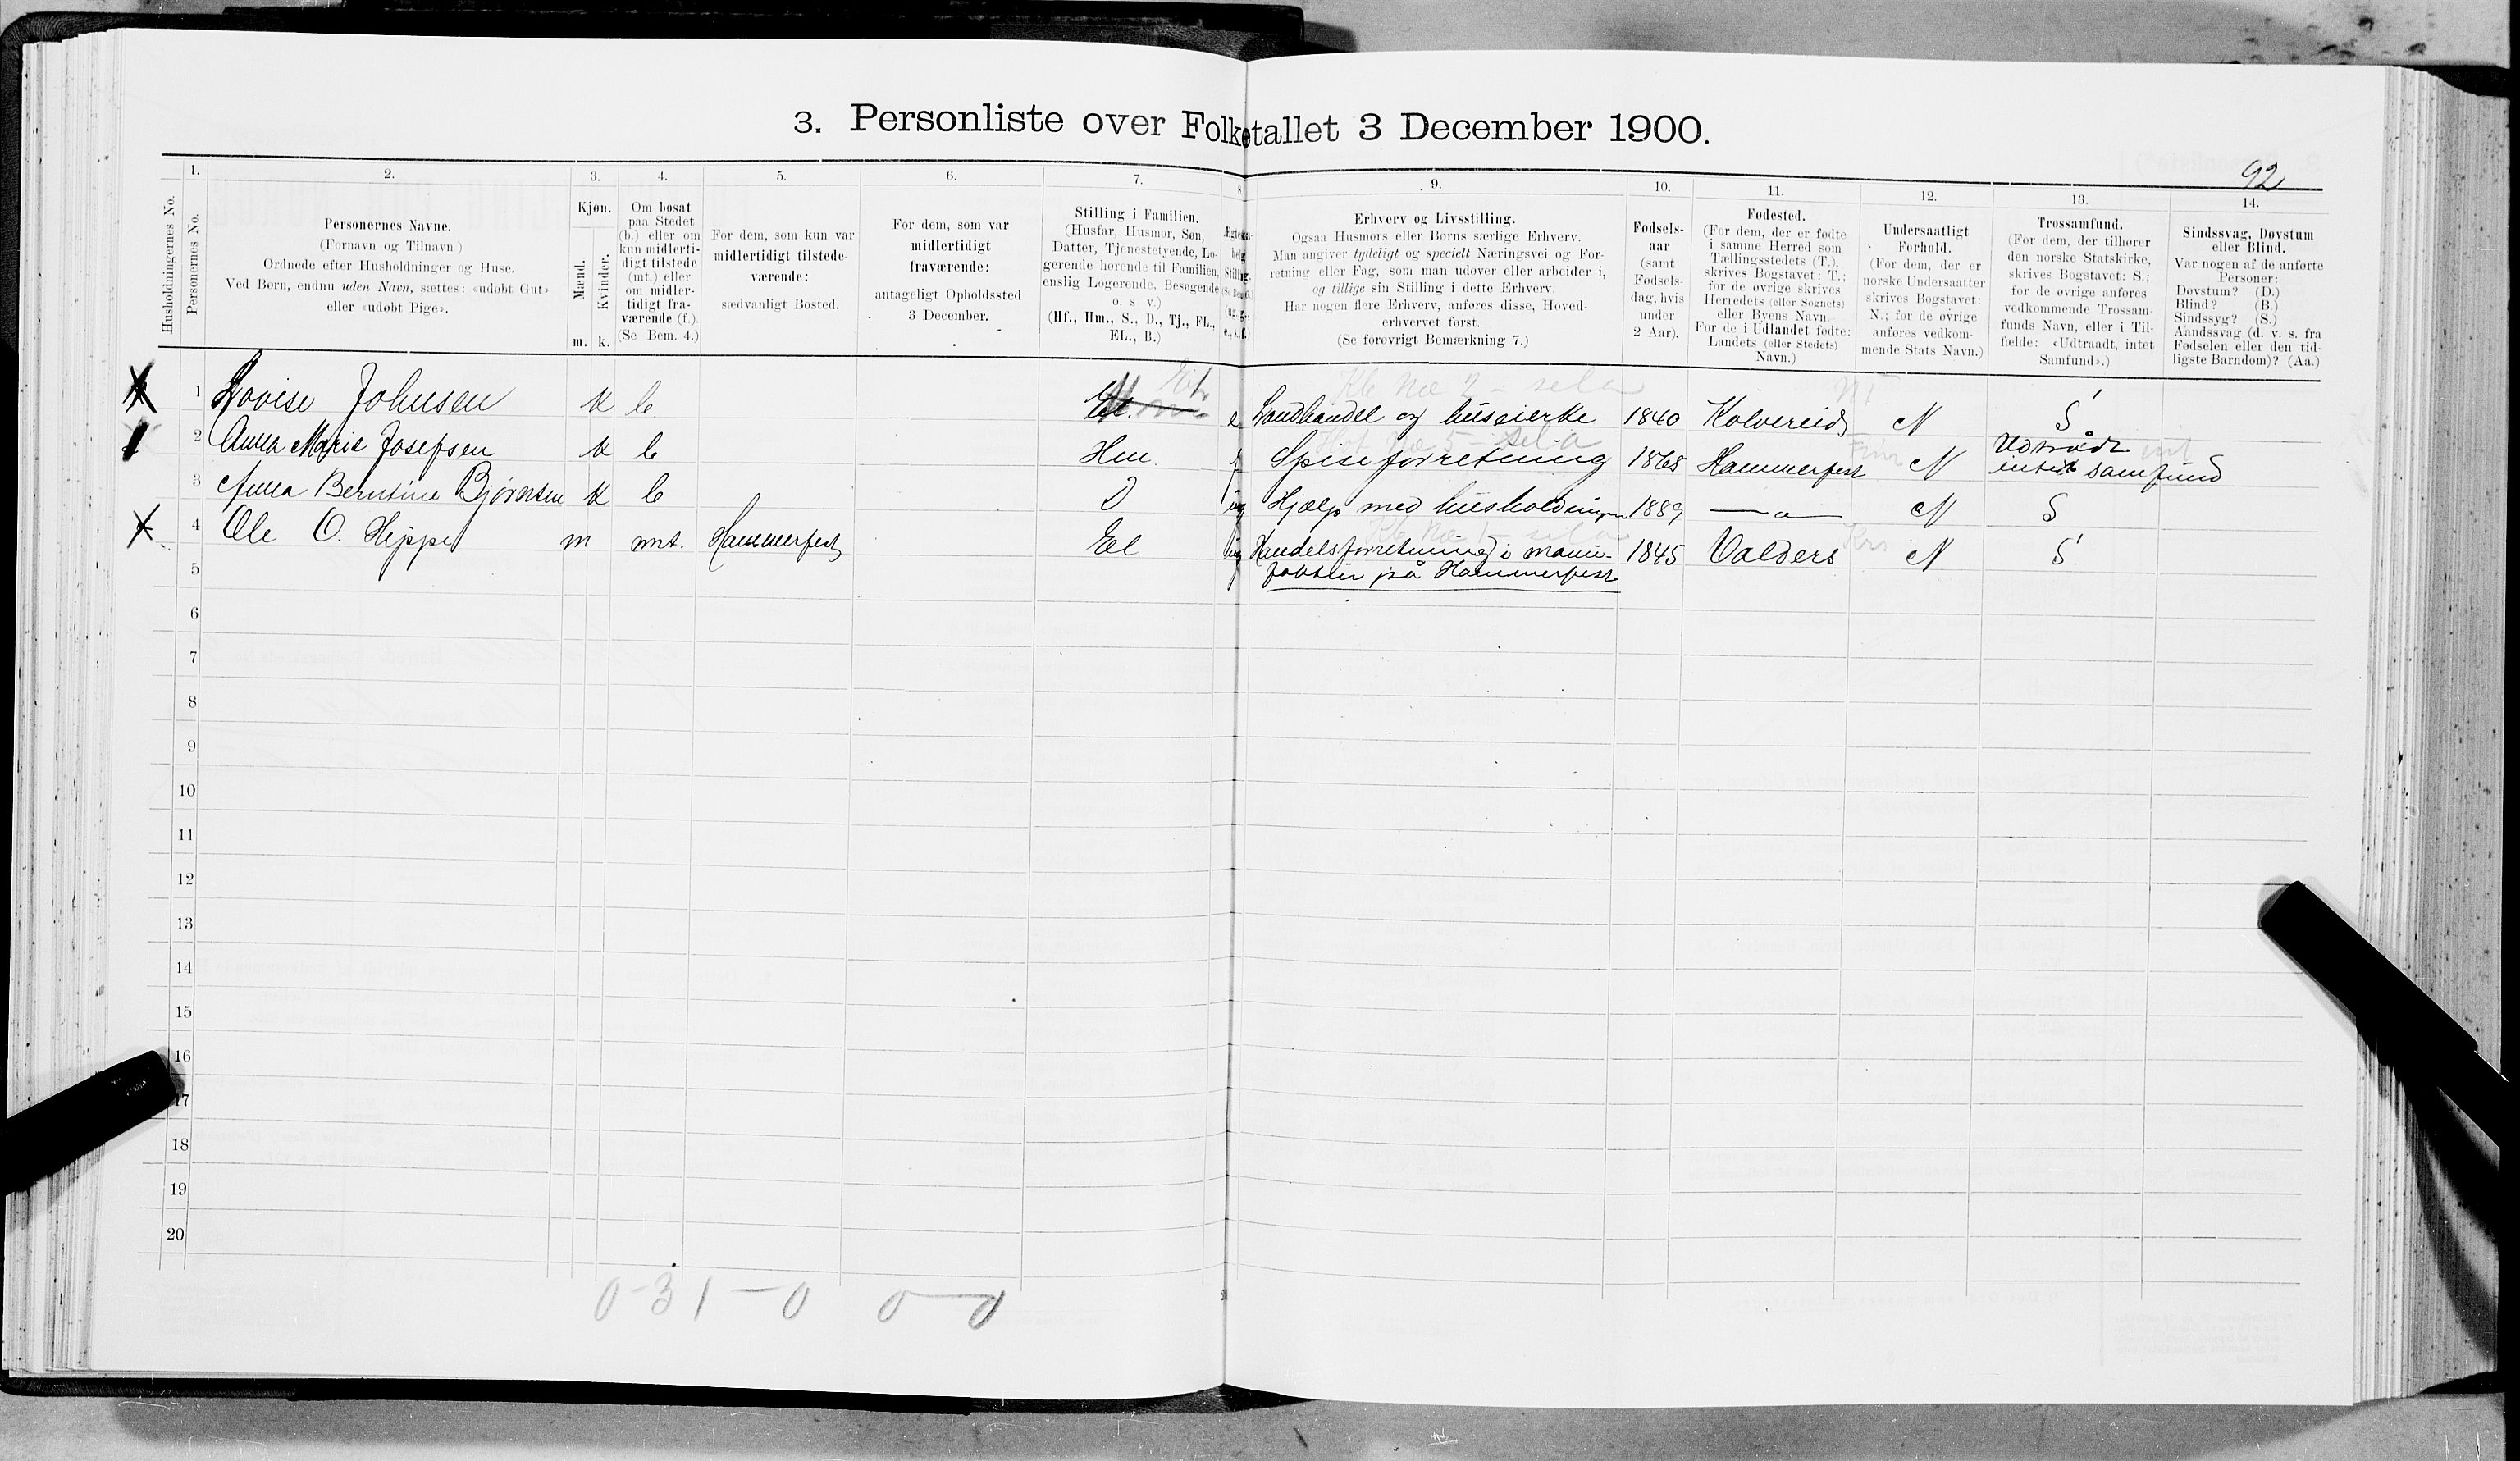 3. Personliste over Folketallet 3 December 1900.
92
Husholdningernes No.
1.
Personernes No.
2.
Personernes Navne.
(Fornavn og Tilnavn.)
Ordnede efter Husholdninger og Huse.
Ved Børn, endnu uden Navn, sættes: «udøbt Gut»
eller «udøbt Pige».
3.
Kjøn.
Mænd.
Kvinder.
m. k.
4.
Om bosat
paa Stedet
(b.) eller om
kun midlerti-
digt tilstede
(mt.) eller
om midler-
tidigt fra-
værende (f.).
(Se Bem. 4.)
5.
For dem, som kun var
midlertidigt tilstede-
værende:
sædvanligt Bosted.
6.
For dem, som var
midlertidigt
fraværende:
antageligt Opholdssted
3 December.
7.
Stilling i Familien.
(Husfar, Husmor, Søn,
Datter, Tjenestetyende, Lo-
gerende hørende til Familien,
enslig Logerende, Besøgende
o. s v.)
(Hf., Hm., S., D., Tj., FL.,
EL., B.)
9.
Erhverv og Livsstilling.
Ogsaa Husmors eller Børns særlige Erhverv.
Man angiver tydeligt og specielt Næringsvei og For-
retning eller Fag, som man udøver eller arbeider i,
og tillige sin Stilling i dette Erhverv.
Har nogen flere Erhverv, anføres disse, Hoved-
erhvervet først.
(Se forøvrigt Bemærkning 7.)
10.
Fødsels-
aar
(samt
Fødsels-
dag, hvis
under
2 Aar).
11.
Fødested.
(For dem, der er fødte
i samme Herred som
Tællingsstedets (T.),
skrives Bogstavet: T.;
for de øvrige skrives
Herredets (eller Sognets)
eller Byens Navn.
For de i Udlandet fødte:
Landets (eller Stedets)
Navn.)
12.
Undersaatligt
Forhold.
(For dem, der er
norske Undersaatter
skrives Bogstavet:
N.; for de øvrige
anføres vedkom-
mende Stats Navn.)
13.
Trossamfund.
(For dem, der tilhører
den norske Statskirke,
skrives Bogstavet: S.;
for de øvrige anføres
vedkommende Trossam-
funds Navn, eller i Til-
fælde: «Udtraadt, intet
Samfund».)
14.
Sindssvag, Døvstum
eller Blind.
Var nogen af de anførte
Personer:
Døvstum? (D.)
Blind? (B.)
Sindssyg? (S.)
Aandssvag (d. v. s. fra
Fødselen eller den tid-
ligste Barndom)? (Aa.)
1 Lovise Johnsen k b. e Landhandel og huseierke 1840 Kolvereid N S
2 Anna Marie Josefsen k b Hm. f Spiseforretning 1868 Hammerfest N Udtrådt
intet samfund
3 Anna Berntine Bjørnsen k b D ug Hjælp med husholdningen 1889 —„— N S
4 Ole O. Hippe m mt. Hammerfest El ug Handelsforretning i manu- 1845 Valders N S
5 faktur på Hammerfest
6
7
8
9
10
11
12
13
14
15
16
17
18
19
20
0-3 1-0 0—0